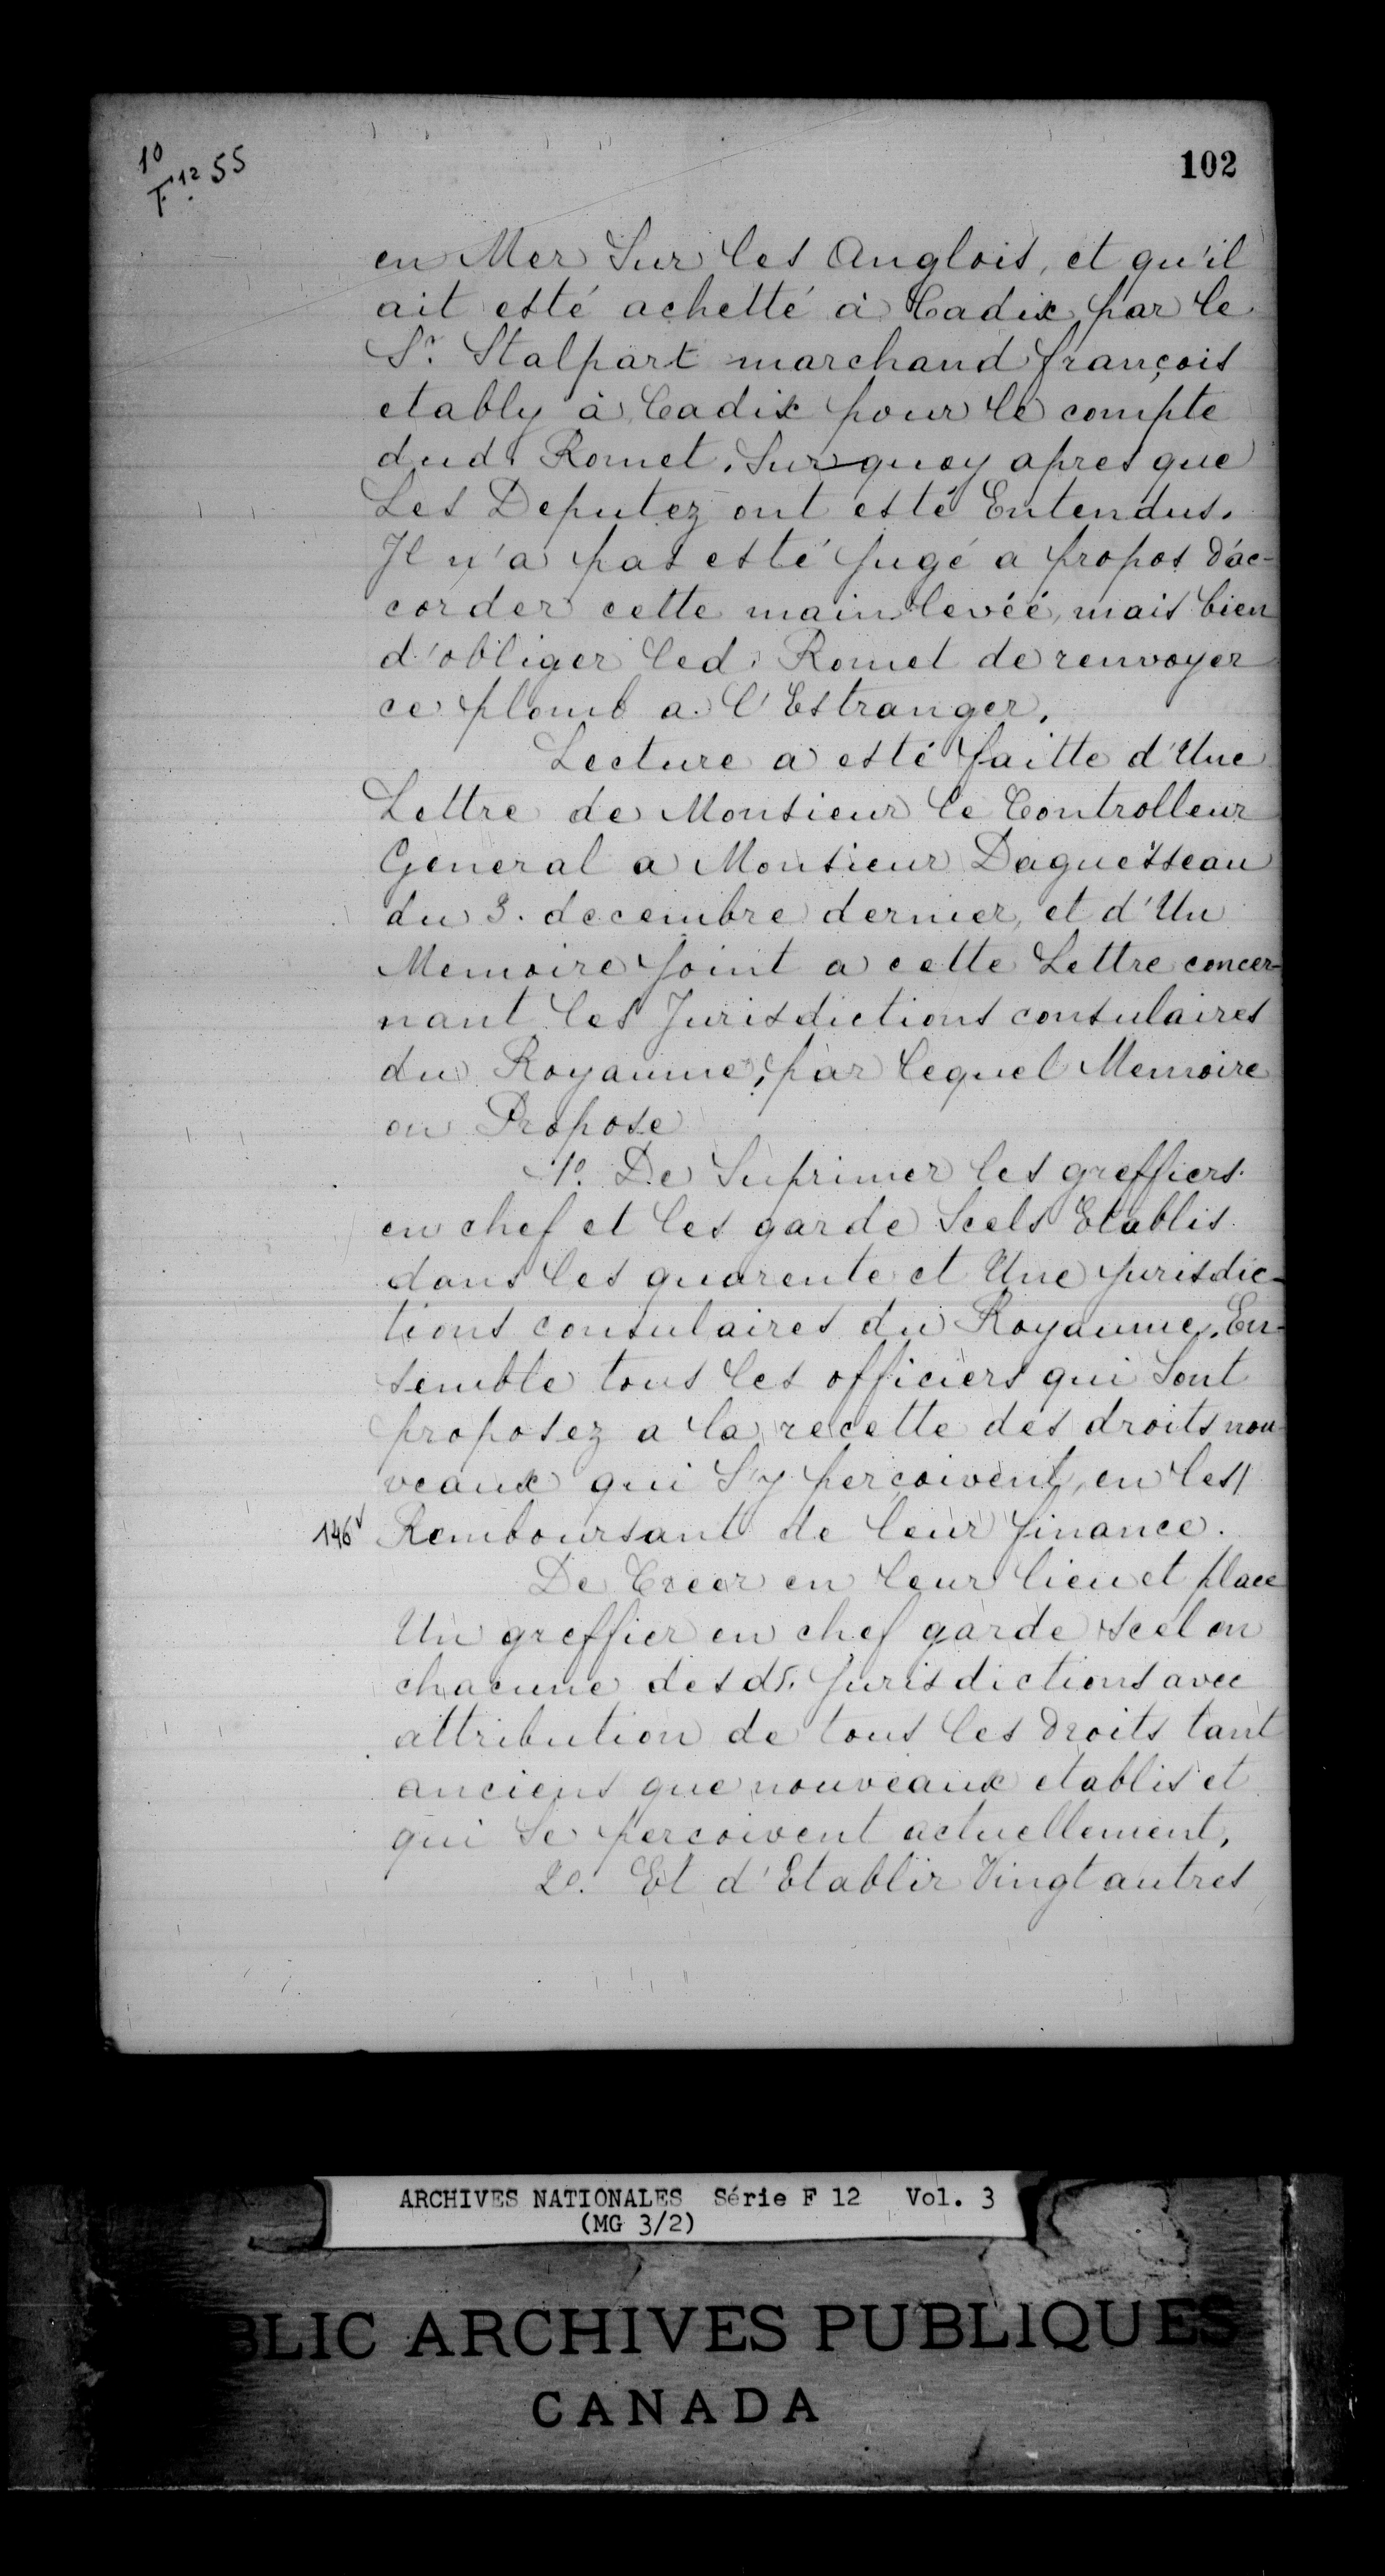 10
F.12 55
102
en Mer Sur les Anglois, et qu'il
ait esté achetté à Cadix par le
Sr. Stalpart marchand françois
etably à Cadix pour le compte
dud. Romet. Sur quoy apres que
Les Deputez ont esté Entendus.
Il n'a pas esté jugé a propos d'ac-
corder cette main levéé, mais bien
d'obliger led. Romet de renvoyer
ce plomb a l'Estranger.
Lecture a esté faitte d'Une
Lettre de Monsieur le Controlleur
General a Monsieur Daguesseau
du 3. decembre dernier, et d'Un
Memoire joint a cette Lettre concer-
nant les Jurisdictions consulaires
du Royaume, par lequel Memoire
on Propose
1o. De Suprimer les greffiers
en chef et les garde Scels Etablis
dans les quarente et Une jurisdic-
tions consulaires du Royaume, En-
semble tous les officiers qui Sont
proposez a la recette des droits nou-
veaux qui S'y perçoivent, en les/
146v Remboursant de leur finance.
De Creer en leur lieu et place
Un greffier en chef garde scel en
chacune desds. jurisdictions avec
attribution de tous les droits tant
anciens que nouveaux etablis et
qui Se percoivent actuellement,
2o. Et d'Etablir Vingt autres
ARCHIVES NATIONALES Série F 12 Vol. 3
(MG 3/2)
BLIC ARCHIVES PUBLIQUES
CANADA